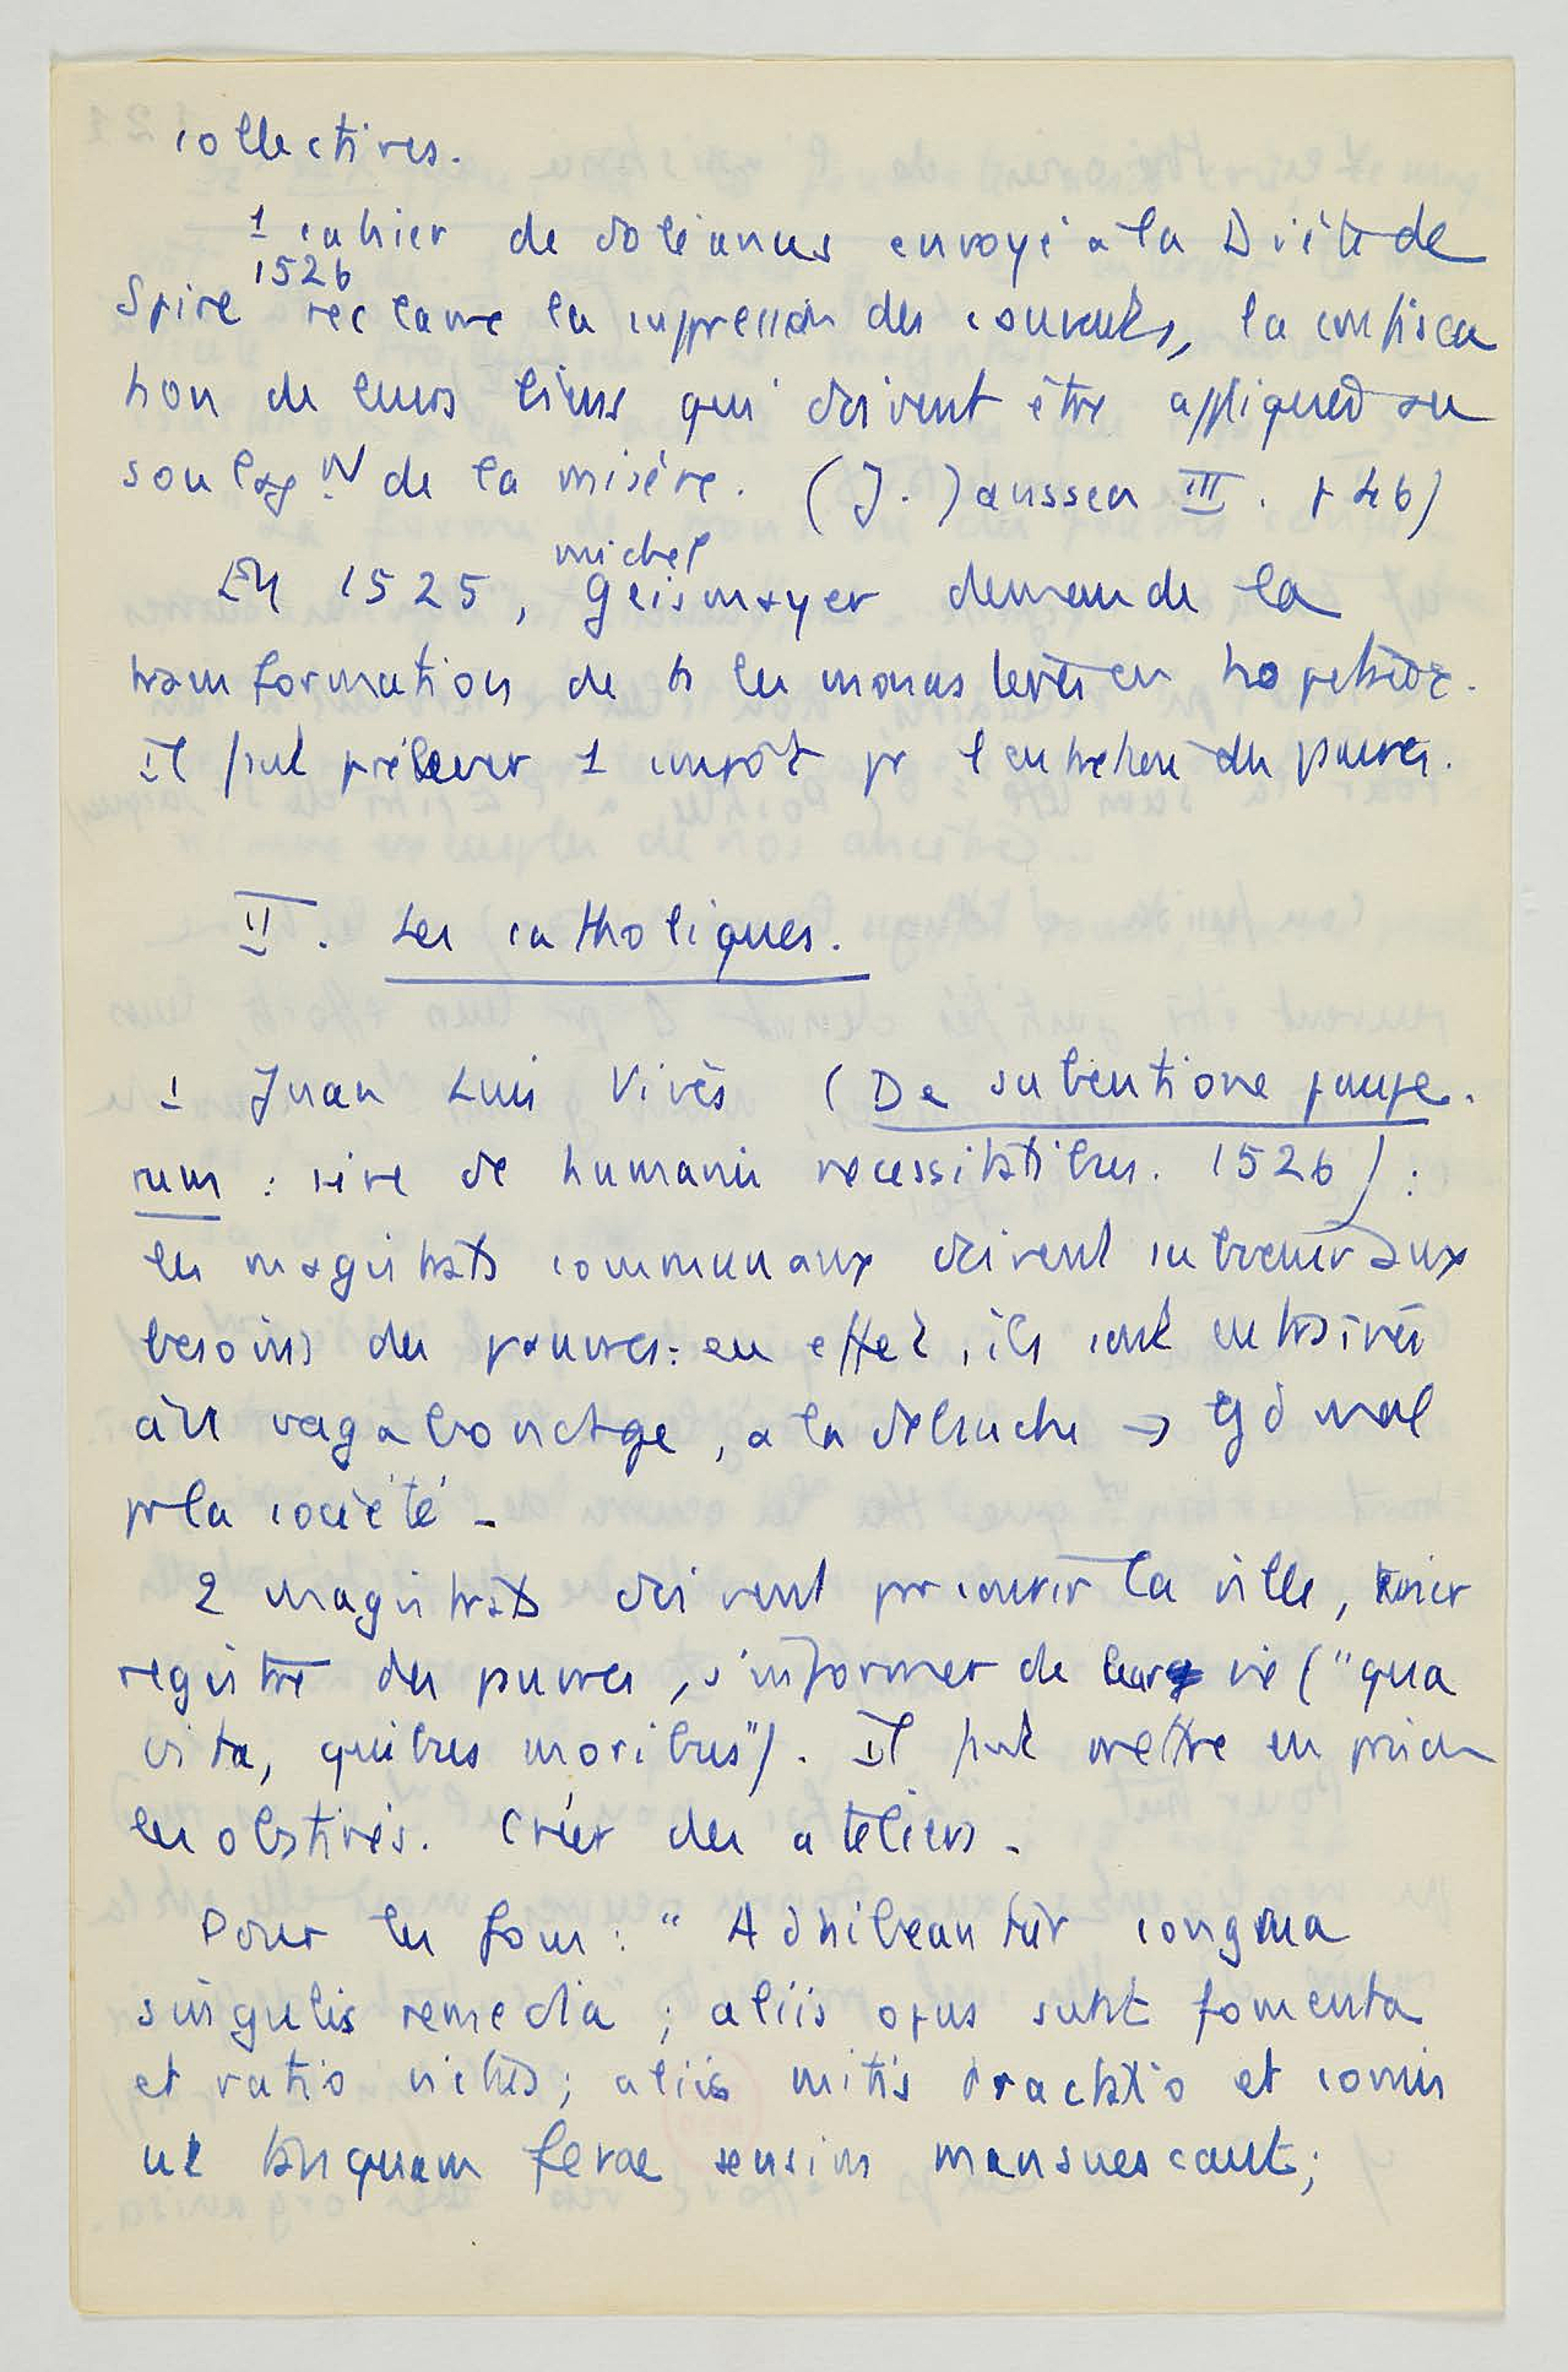 collectives.
1 cahier de doléances envoyé à la Diète de
1526
Spire réclame la suppression des couvents, la confisca
tion de leurs biens qui doivent être appliqués au
soulagt de la misère. (J. Janssen III. p 46)
michel
En 1525, Geismayer demande la
transformation de ts les monastères en hopitaux.
Il faut prélever 1 impôt pr l'entretien des pauvres.
II. Les catholiques.
1 Juan Luis Vivès (De subventione paupe.
rum : sive de humanis necessitatibus. 1526) :
les magistrats communaux doivent subvenir aux
besoins des pauvres : en effet, ils sont entrainés
au vagabondage, à la débauche → gd mal
pr la société -
2 magistrats doivent parcourir la ville,
registre des pauvres, s'informer de leur vie ("qua
vita, quibus moribus"). Il faut mettre en prison
les obstinés. Créer des ateliers -
Pour les fous : " Adhibeantur congrua
singulis remedia ; aliis opus sunt fomenta
et ratio victus ; aliis mitis tractatio et comis
ut tanquam ferae sensim mansuescant ;